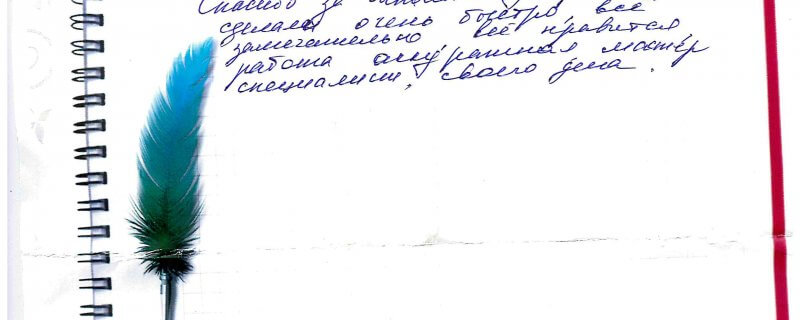 Спасибо за
сделал очень быстро, всё
замечательно всё нравится,
работа аккуратная мастер
специалист, своего дела.